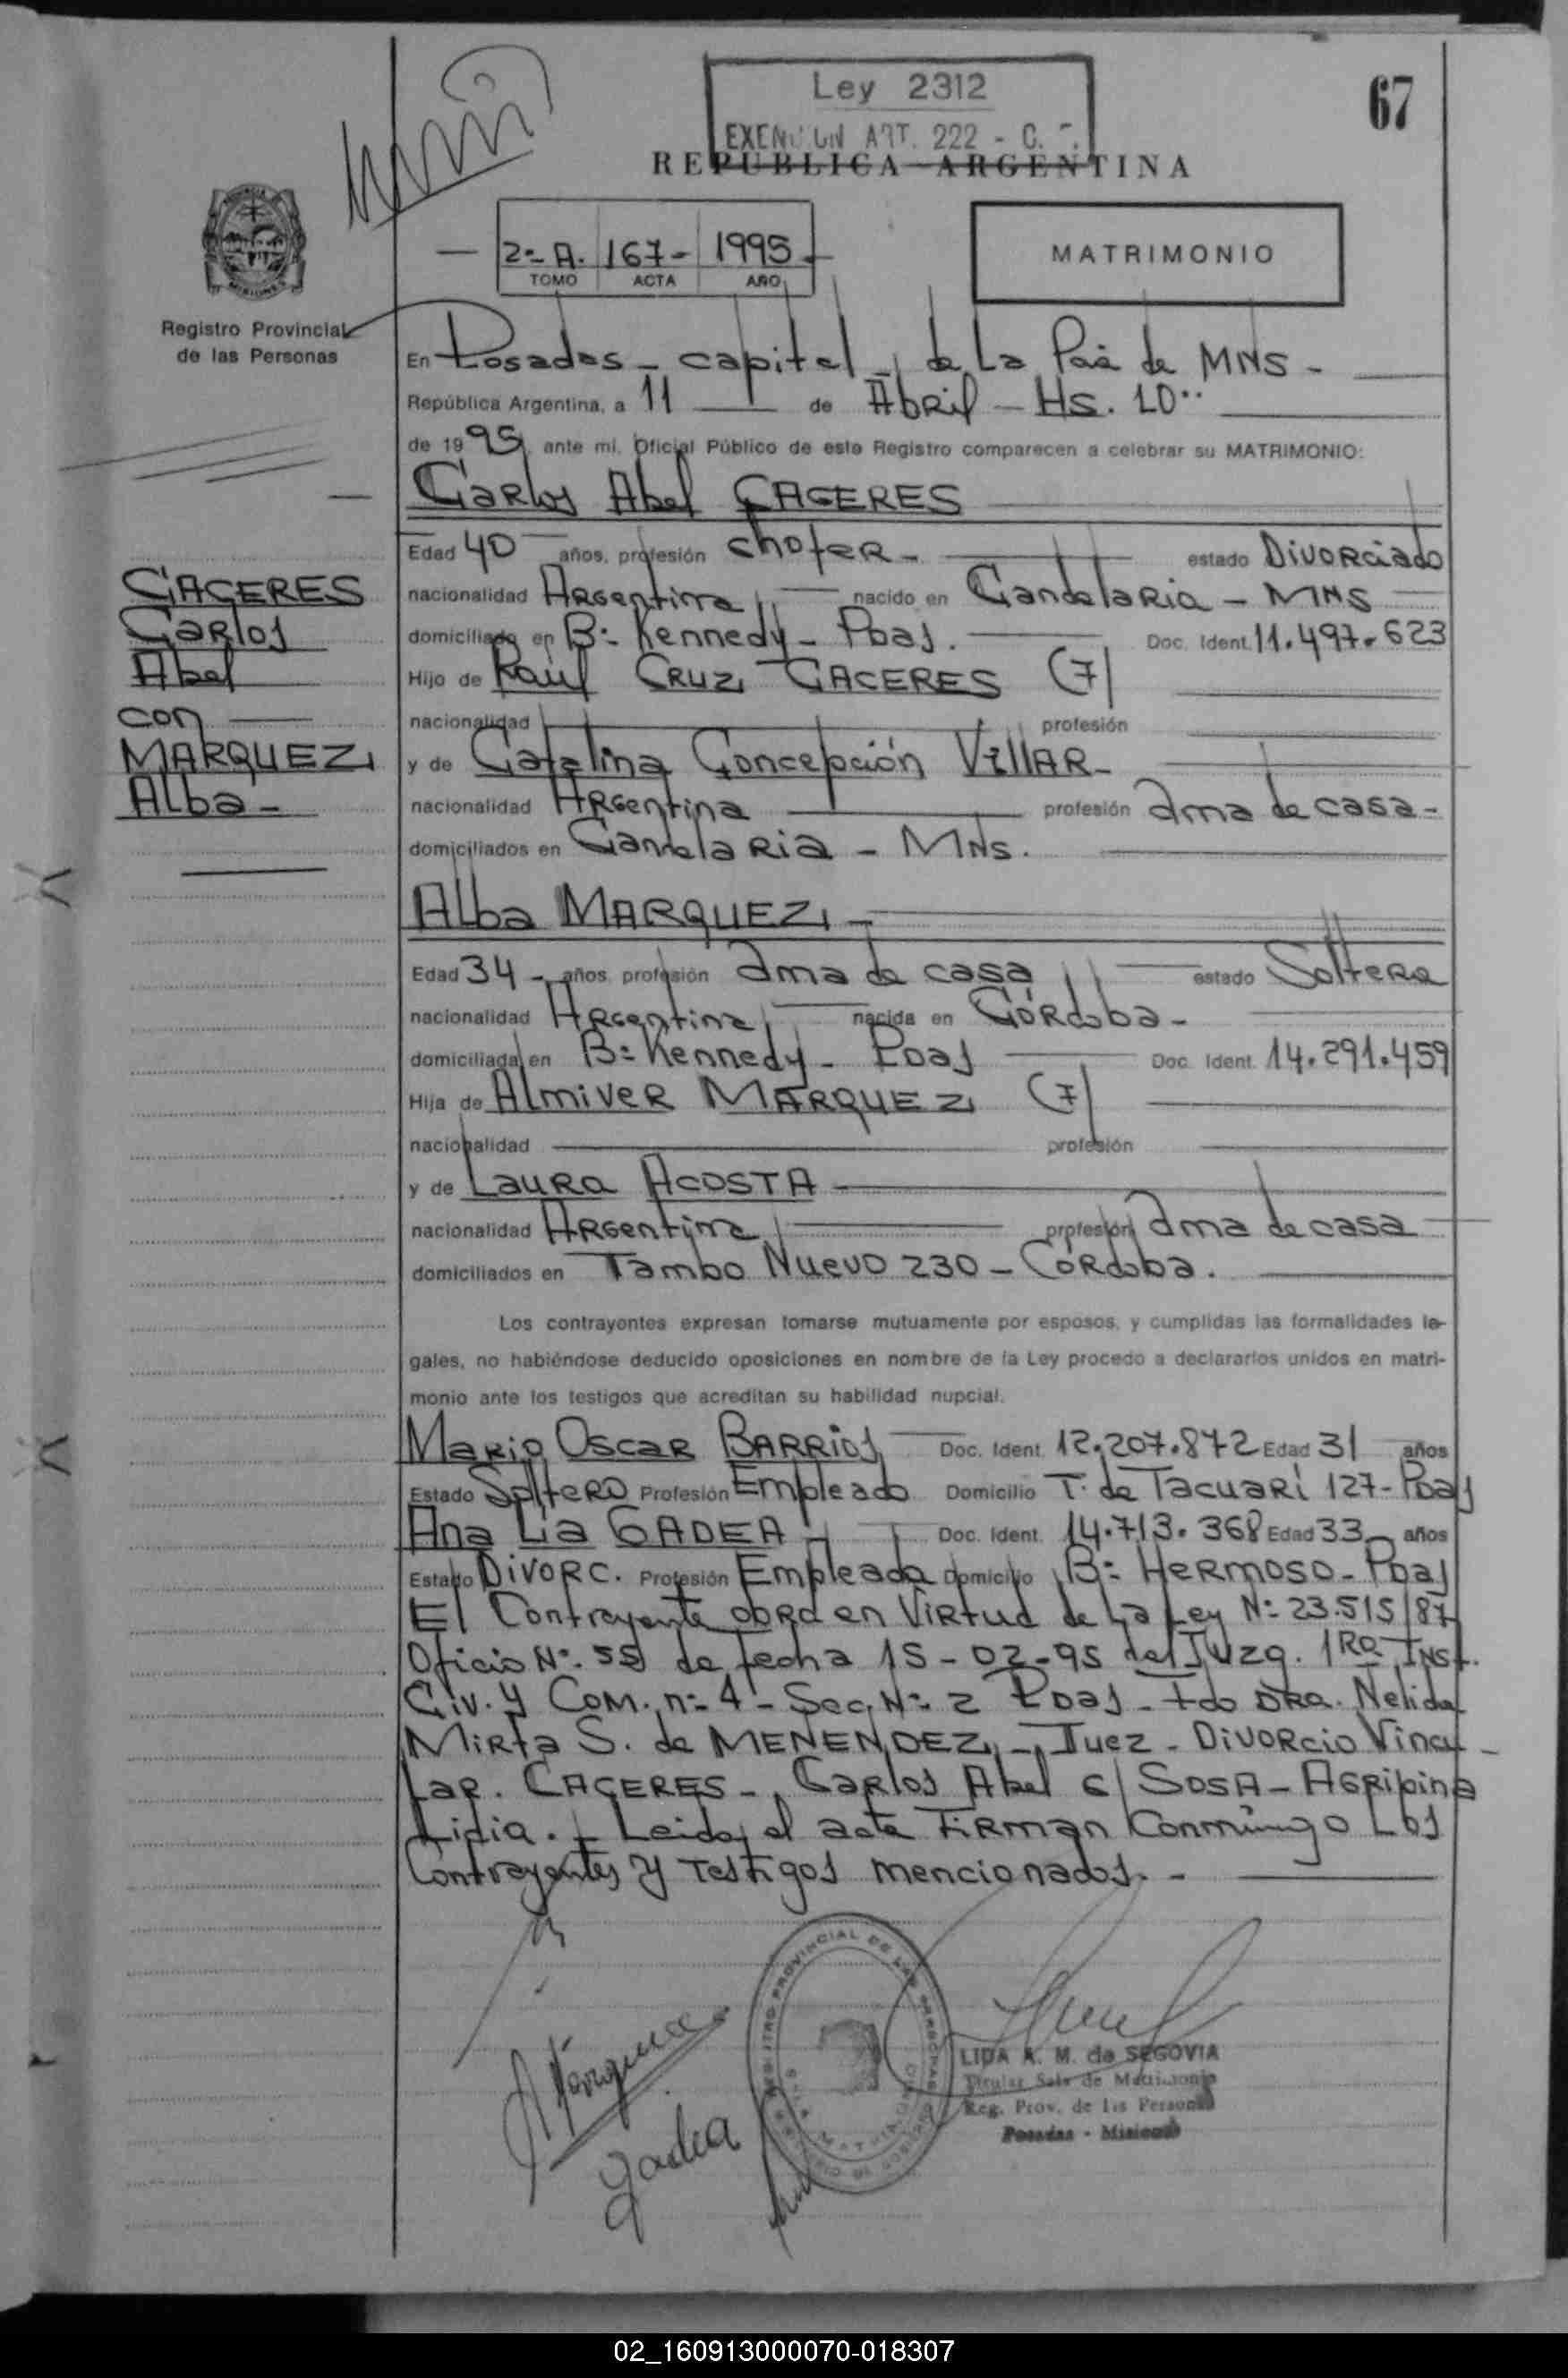 Ley 2312
EXENCION ART. 222 - C.
67
REPUBLICA ARGENTINA
2º A. 167- 1995-
TOMO ACTA AÑO
MATRIMONIO
Registro Provincial
de las Personas
En Posadas - capital - de La Pcia de MNS -
República Argentina, a 11 de Abril - Hs. 10··
de 1995, ante mi, Oficial Público de este Registro comparecen a celebrar su MATRIMONIO:
Carlos Abel CACERES
Edad 40 años, profesión chofer - estado Divorciado
nacionalidad Argentina nacido en Candelaria - MNS
domiciliado en Bº Kennedy - Pdas. Doc. Ident. 11.497.623
Hijo de Raúl CRUZ CACERES (7)
nacionalidad profesión
y de Catalina Concepción VILLAR -
nacionalidad Argentina profesión ama de casa -
domiciliados en Candelaria - MNS.
CACERES
Carlos
Abel
con
MARQUEZ
Alba -
Alba MARQUEZ -
Edad 34 - años, profesión ama de casa estado Soltera
nacionalidad Argentina nacida en Córdoba -
domiciliada en Bº Kennedy - Pdas Doc. Ident. 14.291.459
Hija de Almiver MARQUEZ (7)
nacionalidad profesión
y de Laura ACOSTA
nacionalidad Argentina profesión ama de casa
domiciliados en Tambo Nuevo 230 - Córdoba.
Los contrayentes expresan tomarse mutuamente por esposos, y cumplidas las formalidades le-
gales, no habiéndose deducido oposiciones en nombre de la Ley procedo a declararlos unidos en matri-
monio ante los testigos que acreditan su habilidad nupcial.
Mario Oscar BARRIOS Doc. Ident. 12.207.872 Edad 31 años
Estado Soltero Profesión Empleado Domicilio T. de Tacuarí 127 - Pdas
Ana Lia GADEA Doc. Ident. 14.713.368 Edad 33 años
Estado Divorc. Profesión Empleada Domicilio Bº Hermoso - Pdas
El Contrayente obra en Virtud de La Ley Nº 23.515/87
Oficio Nº 55 de fecha 15-02-95 del Juzg. 1Ra Inst.
Civ. y Com. nº 4 - Sec. Nº 2 Pdas - Fdo Dra. Nelida
Mirta S. de MENENDEZ - Juez - Divorcio Vincu-
Lar. CACERES - Carlos Abel c/ SOSA - Agripina
Lidia. - Leida el acta Firman Conmigo Los
Contrayentes y Testigos mencionados. -
A Marquez
Gadea
REGISTRO PROVINCIAL DE LAS PERSONAS
LIDA A. M. de SEGOVIA
Titular Sala de Matrimonio
Reg. Prov. de las Personas
Posadas - Misiones
02_160913000070-018307